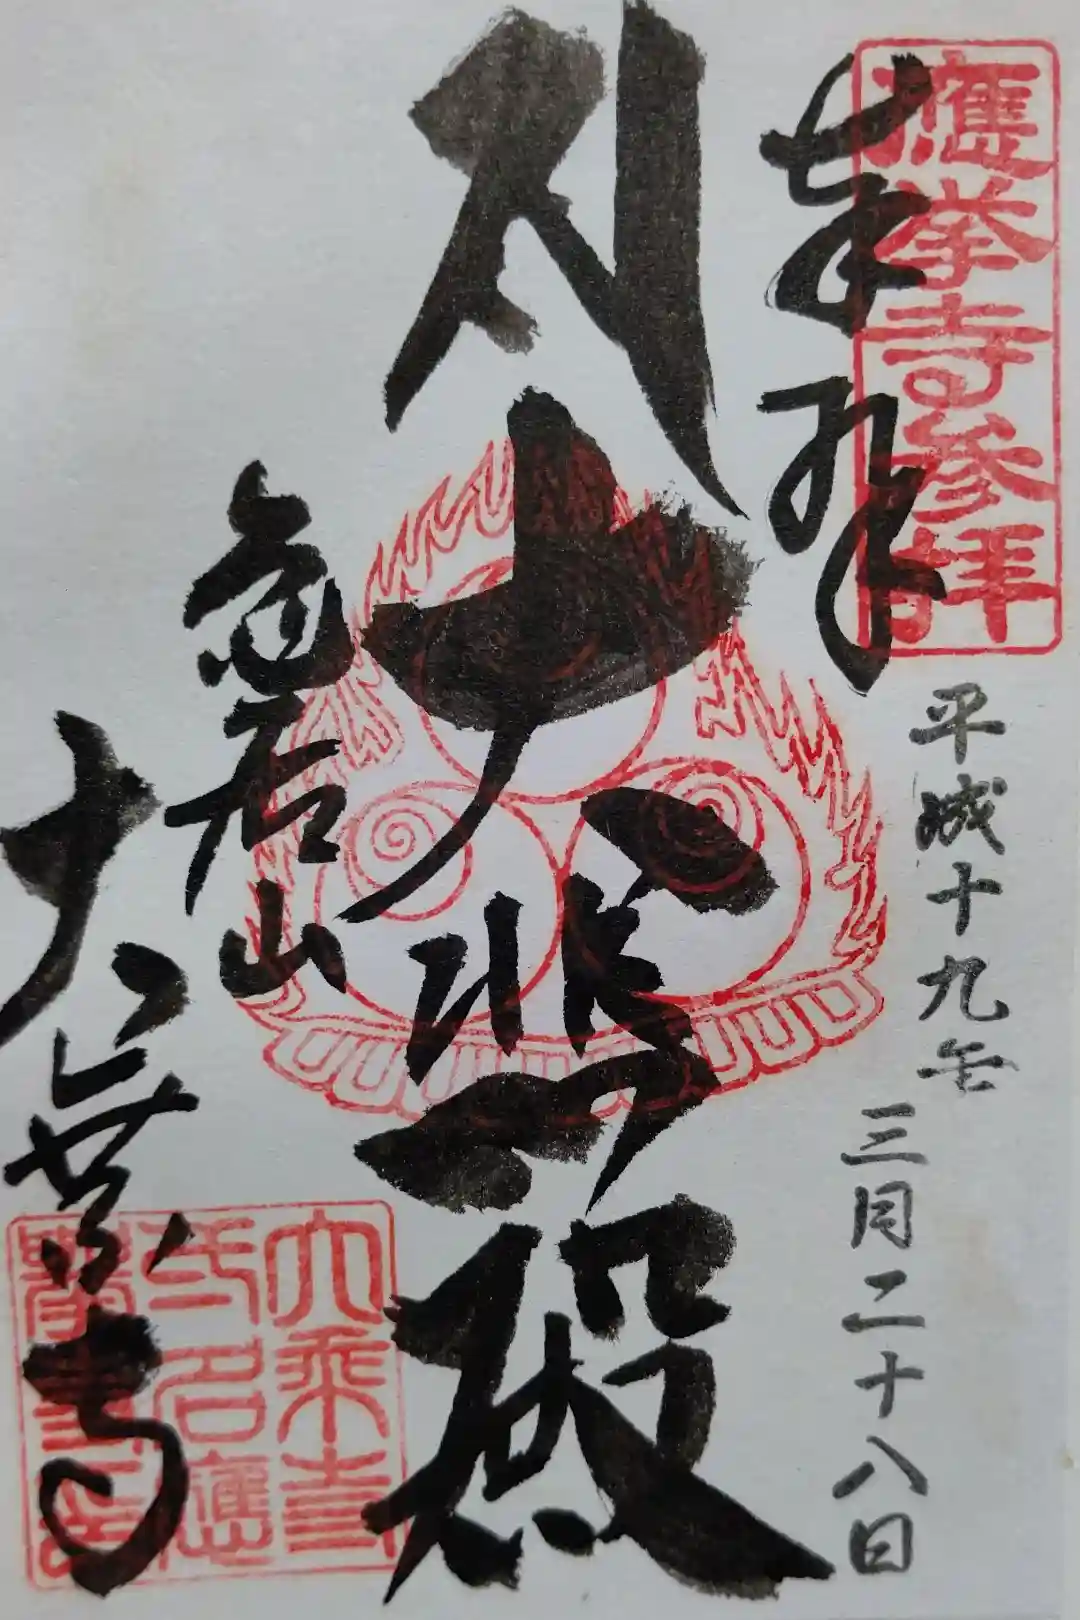 奉拝
應挙寺参拝
平成十九年
三月二十八日
大悲殿
亀居山
大乗寺
大乗寺
弍名應
擧寺印